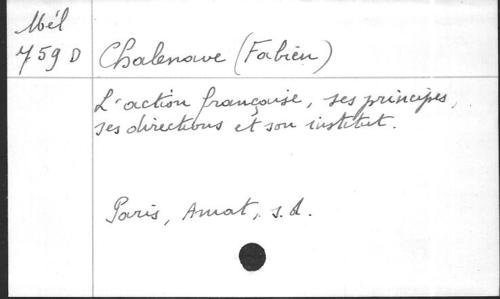 Mél
759 D
Chalenave (Fabien)
L'action française, ses principes,
ses directions et son institut.
Paris, Amat, s.d.